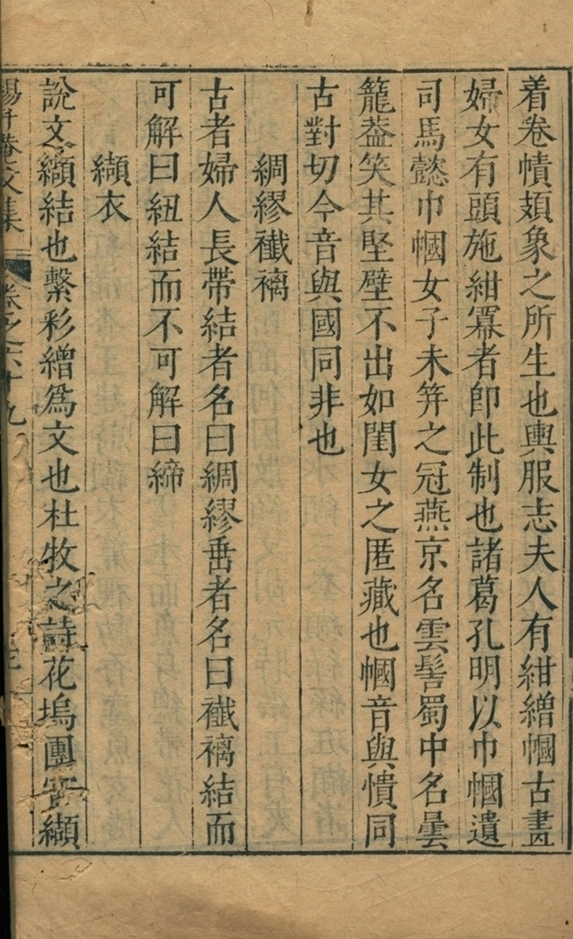 着卷幘頍象之所生也輿服志夫人有紺繒幗古畫
婦女有頭施紺冪者卽此制也諸葛孔明以巾幗遺
司馬懿巾幗女子未笄之冠燕京名雲髻蜀中名曇
籠葢笑其堅壁不出如閨女之匿藏也幗音與憒同
古對切今音與國同非也
綢繆襳褵
古者婦人長帶結者名曰綢繆垂者名曰襳褵結而
可解曰紐結而不可解曰締
纈衣
說文纈結也繫彩繒爲文也杜牧之詩花塢團宮纈
升菴文集
卷之六十九